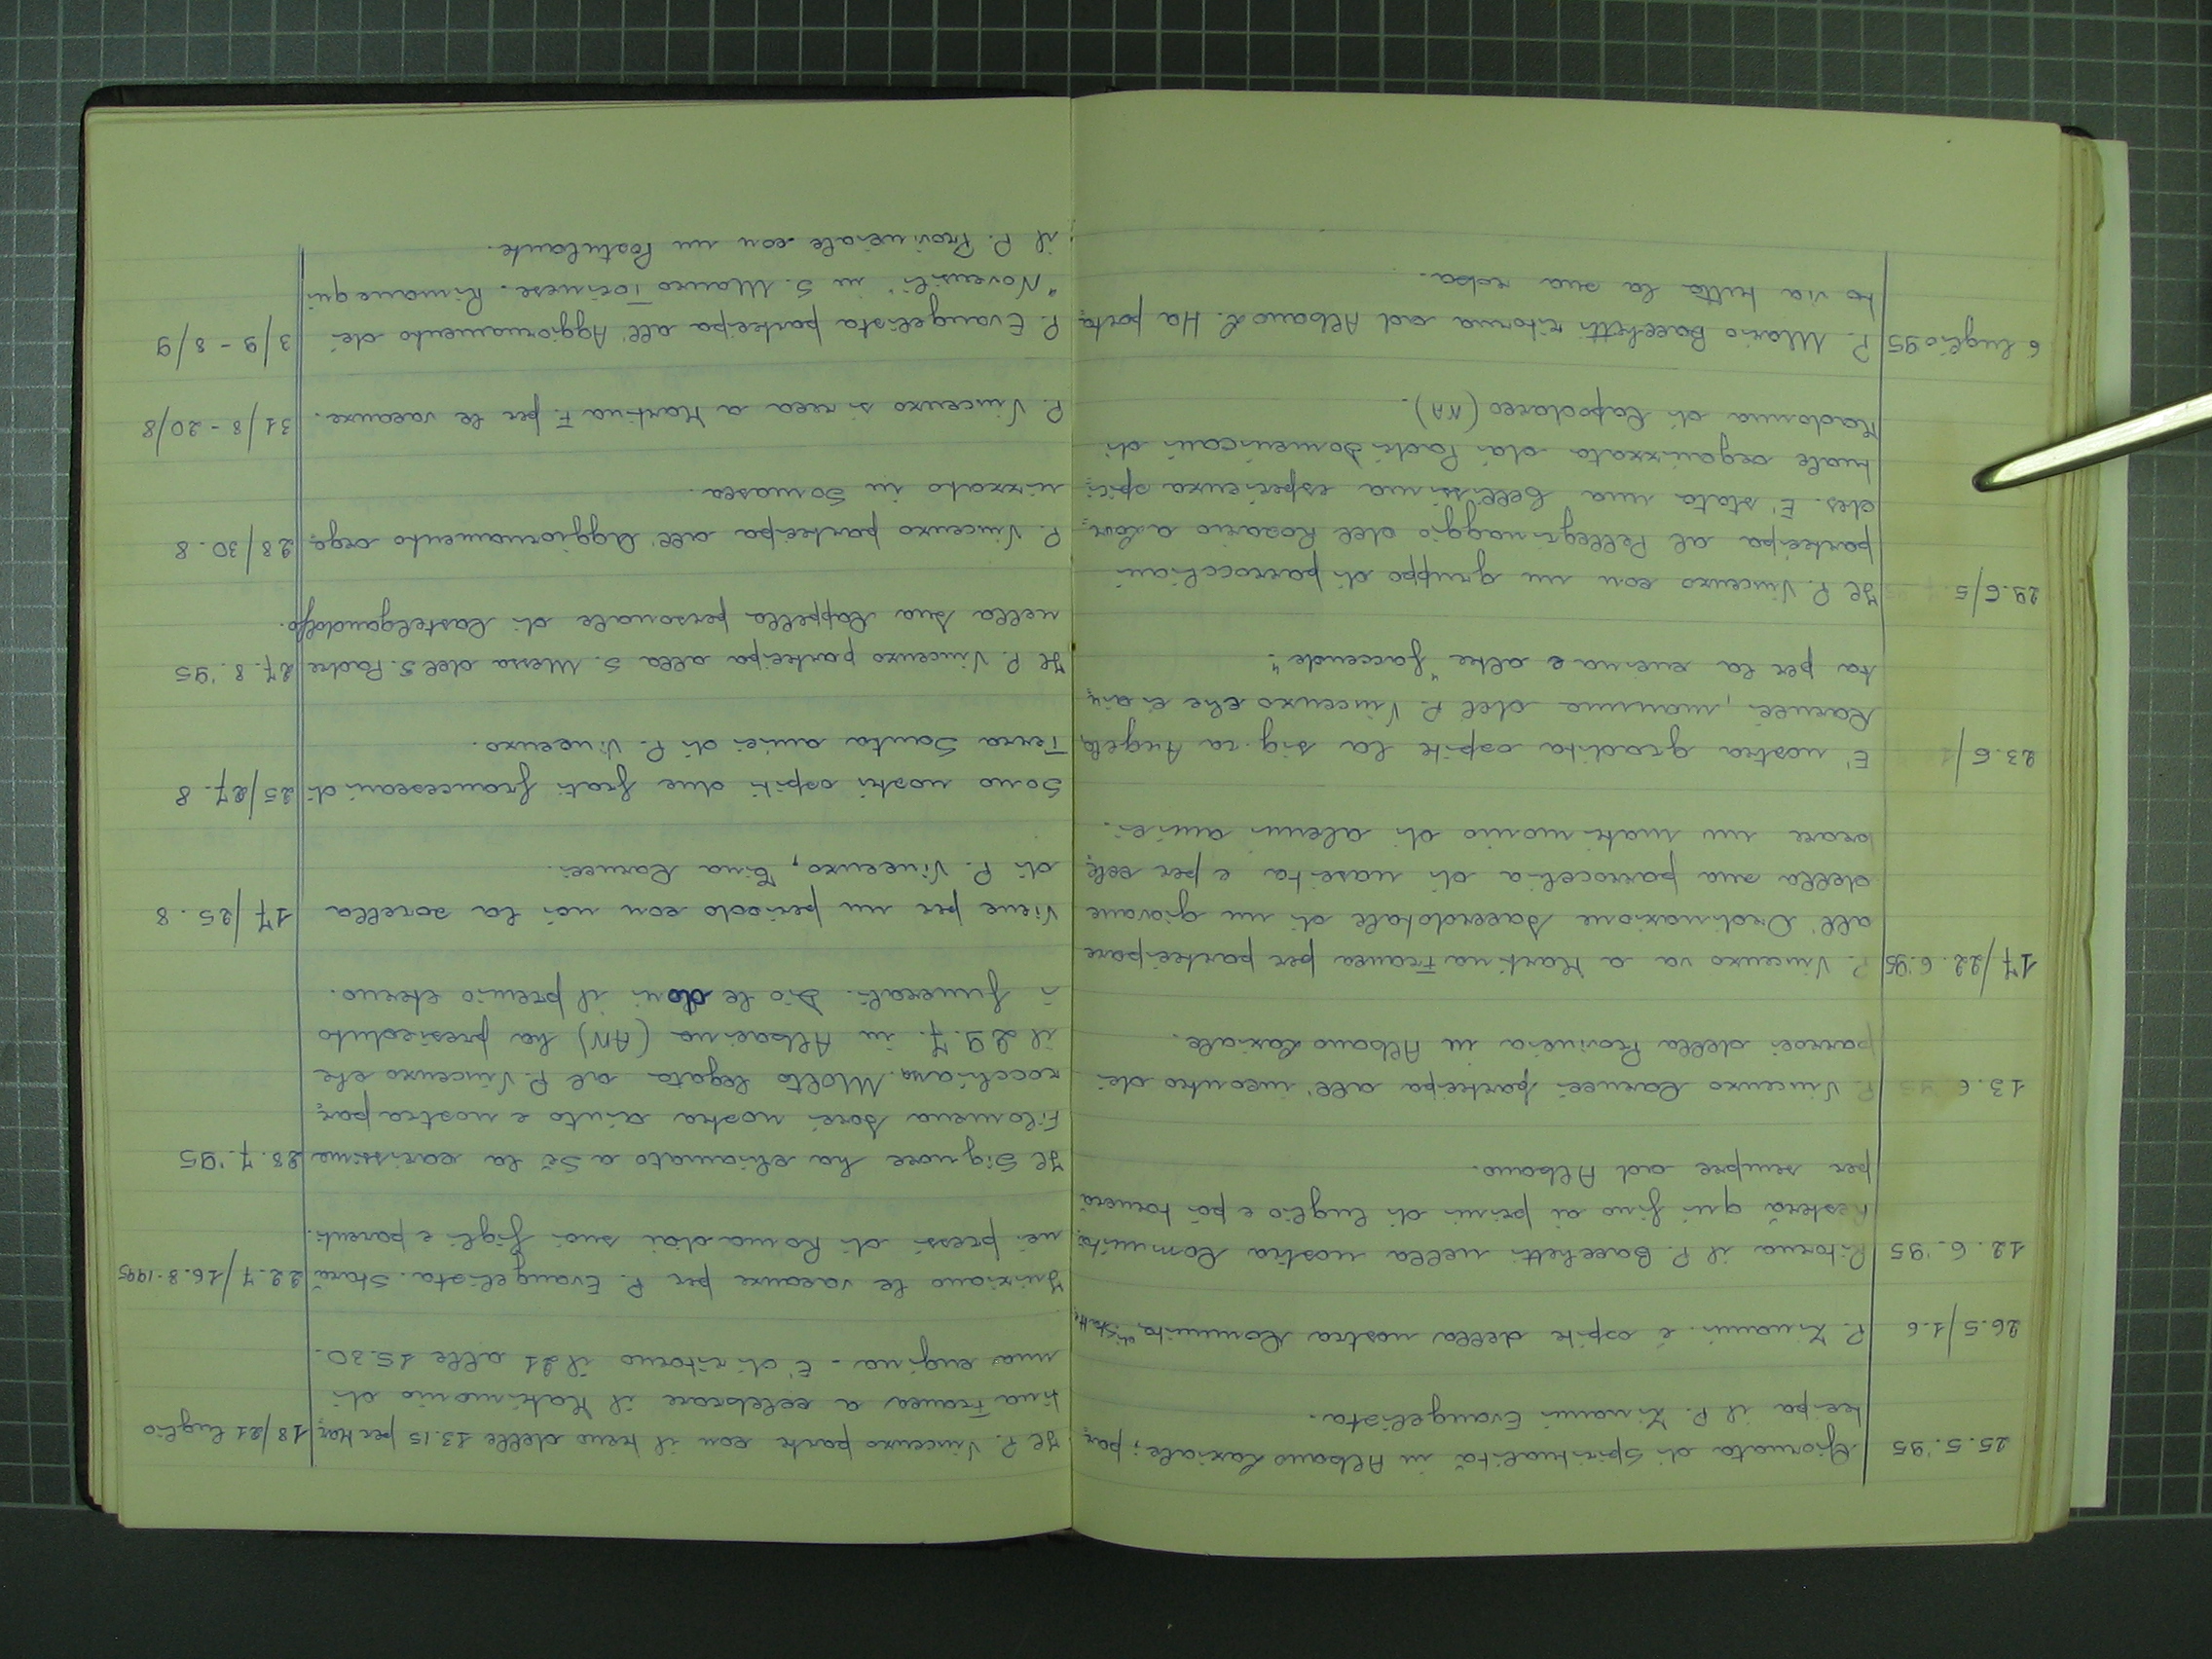 25.5.'95 Giornata di Spiritualità in Albano Laziale; par=
tecipa il P. Zinanni Evangelista.
26.5/1.6 P. Zinanni è ospite della nostra Comunità di Statte.
12.6.'95 Ritorna il P. Bacchetti nella nostra Comunità.
Resterà qui fino ai primi di luglio e poi tornerà
per sempre ad Albano.
13.6 P. Vincenzo Carucci partecipa all'incontro dei
parroci della Provincia in Albano Laziale.
17/22.6.'95 P. Vincenzo va a Martina Franca per partecipare
all'Ordinazione sacerdotale di un giovane
della sua parrocchia di nascita e per cele=
brare un matrimonio di alcuni amici.
23.6/ E' nostra gradita ospite la sig.ra Angela
Carucci, mamma del P. Vincenzo che ci aiu=
ta per la cucina e altre "faccende".
29.6/5. Il P. Vincenzo con un gruppo di parrocchiani
partecipa al Pellegrinaggio del Rosario a Lour=
des. E' stata una bellissima esperienza spiri=
tuale organizzata dai Padri Domenicani di
Madonna di Capodarco (NA).
6 luglio 95 P. Mario Bacchetti ritorna ad Albano L. Ha porta=
to via tutta la sua roba.
Il P. Vincenzo parte con il treno delle 13.15 per Mar= 18/21 luglio
tina Franca a celebrare il Matrimonio di
una cugina - E' di ritorno il 21 alle 15.30.
Iniziano le vacanze per P. Evangelista. Starà 22.7/16.8.1995
nei pressi di Roma dai suoi figli e parenti.
Il Signore ha chiamato a Sè la carissima 28.7.'95
Filomena Sorci nostra aiuto e nostra par=
rocchiana. Molto legata al P. Vincenzo che
il 29.7. in Albacina (AN) ha presieduto
i funerali. Dio le doni il premio eterno.
Viene per un periodo con noi la sorella 17/25.8
di P. Vincenzo, Tina Carucci.
Sono nostri ospiti due frati francescani di 25/27.8
Terra Santa amici di P. Vincenzo.
Il P. Vincenzo partecipa alla S. Messa del S. Padre 27.8.'95
nella sua Cappella personale di Castelgandolfo.
P. Vincenzo partecipa all'Aggiornamento orga= 28/30.8
nizzato in Somasca.
P. Vincenzo si reca a Martina F. per le vacanze. 31/8 - 20/8
P. Evangelista partecipa all'Aggiornamento dei 3/9 - 8/9
"Novensili" in S. Mauro Torinese. Rimane qui
il P. Provinciale con un Postulante.